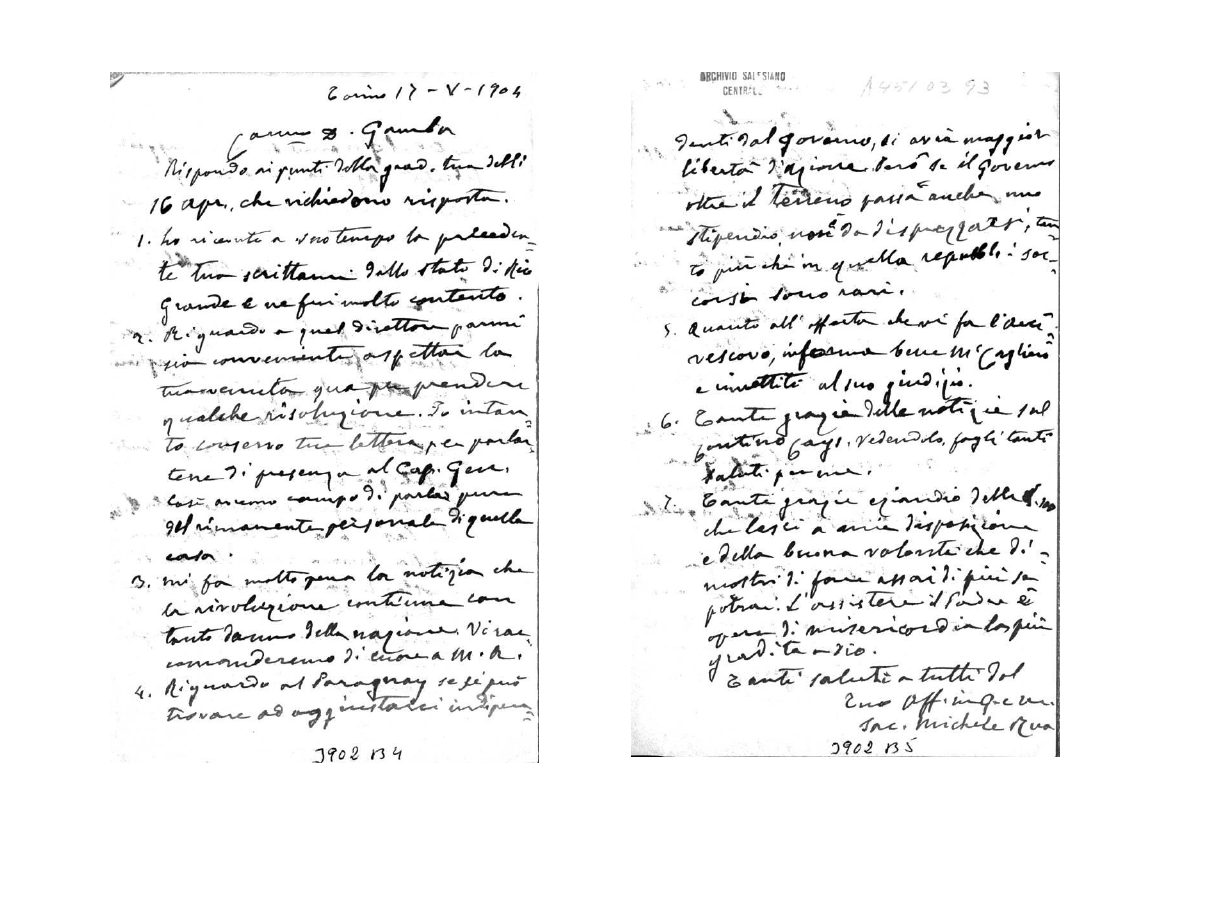 Torino 17 - V - 1904
Cariss. D. Gamba
Rispondo ai punti della grad. tua delli
16 apr., che richiedono risposta.
1. Ho ricevuto a suo tempo la preceden=
te tua scrittami dallo stato di Rio
Grande e ne fui molto contento.
2. Riguardo a quel direttore parmi
sia conveniente aspettar la
tua venuta qua per prendere
qualche risoluzione. Io intan=
to conservo tua lettera per parlar=
tene di presenza al Cap. Gen.
Così avremo campo di parlar pure
del rimanente personale di quella
casa.
3. Mi fa molto pena la notizia che
la rivoluzione continua con
tanto danno della nazione. Vi rac=
comanderemo di cuore a M. A.
4. Riguardo al Paraguay se si può
trovare ad aggiustarci indipen=
J902 B4
ARCHIVIO SALESIANO
CENTRALE
A451 03 93
denti dal Governo, si avrà maggior
libertà d'azione. Però se il Governo
oltre il terreno passa anche uno
stipendio, non è da disprezzarsi, tan=
to più che in quella repubbl. i soc=
corsi sono rari.
5. Quanto all'offerta che vi fa l'Arci=
vescovo, informa bene Mr Cagliero
e rimettiti al suo giudizio.
6. Tante grazie delle notizie sul
Contino Cays. Vedendolo, fagli tanti
saluti per me.
7. Tante grazie eziandio delle
che lasci a mia disposizione
e della buona volontà che di=
mostri di fare assai di più se
potrai. L'assistere il Padre è
opera di misericordia la più
gradita a Dio.
Tanti saluti a tutti dal
Tuo Aff. in G. e M.
Sac. Michele Rua
J902 B5